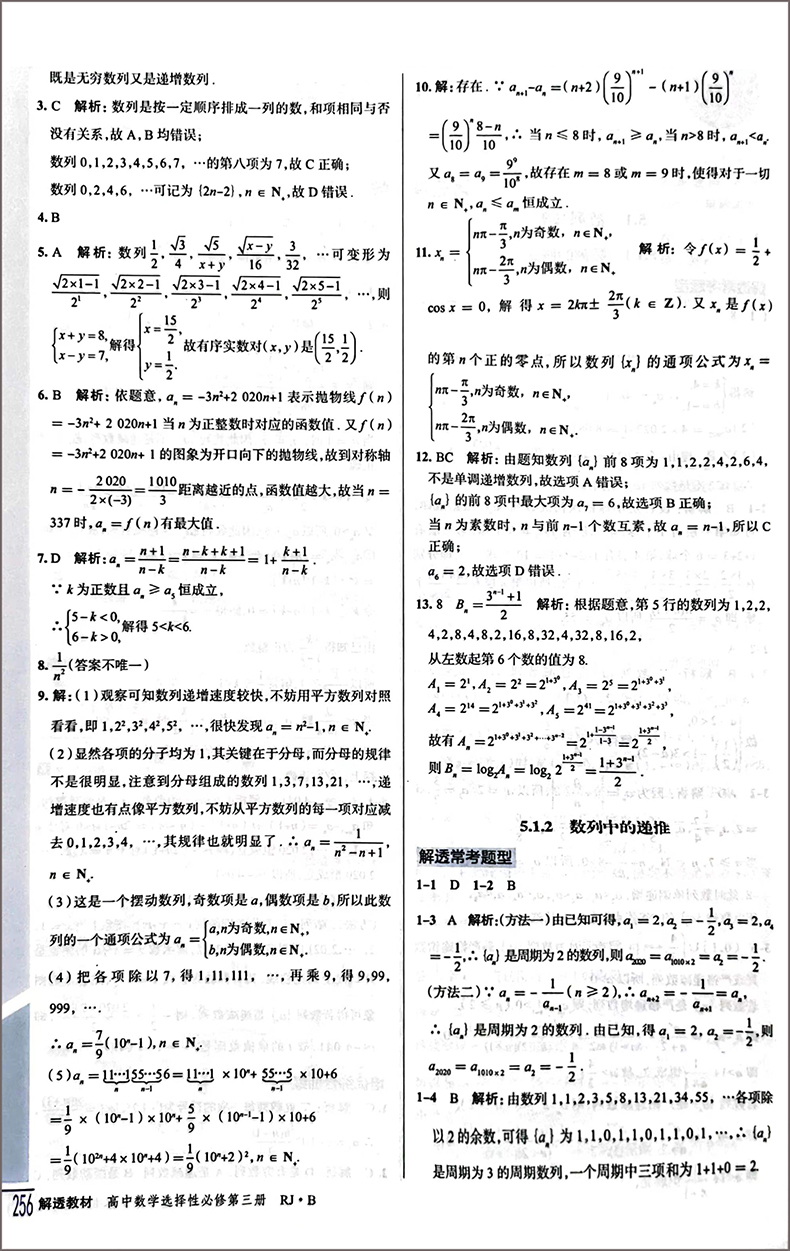 既是无穷数列又是递增数列.
3. C 解析:数列是按一定顺序排成一列的数,和项相同与否
没有关系,故 A,B 均错误;
数列 0,1,2,3,4,5,6,7, …的第八项为 7,故 C 正确;
数列 0,2,4,6, …可记为 {2n-2},n∈N₊,故 D 错误.
4. B
5. A 解析:数列 1/2, √3/4, √5/(x+y), √(x-y)/16, 3/32, …可变形为
√(2×1-1)/2¹, √(2×2-1)/2², √(2×3-1)/2³, √(2×4-1)/2⁴, √(2×5-1)/2⁵, …,则
{x+y=8, x-y=7, 解得 {x=15/2, y=1/2. 故有序实数对(x,y)是(15/2, 1/2).
6. B 解析:依题意, aₙ = -3n²+2 020n+1 表示抛物线 f(n)
= -3n²+ 2 020n+1 当 n 为正整数时对应的函数值. 又 f(n)
= -3n²+2 020n+ 1 的图象为开口向下的抛物线,故到对称轴
n = - 2 020/(2×(-3)) = 1 010/3 距离越近的点,函数值越大,故当 n =
337 时, aₙ = f(n) 有最大值.
7. D 解析: aₙ = (n+1)/(n-k) = (n-k+k+1)/(n-k) = 1+ (k+1)/(n-k).
∵ k 为正数且 aₙ ≥ a₅ 恒成立,
∴ {5-k<0, 6-k>0, 解得 5<k<6.
8. 1/n² (答案不唯一)
9. 解:(1)观察可知数列递增速度较快,不妨用平方数列对照
看看,即 1,2²,3²,4²,5², …,很快发现 aₙ = n²-1,n∈N₊.
(2)显然各项的分子均为 1,其关键在于分母,而分母的规律
不是很明显,注意到分母组成的数列 1,3,7,13,21, …,递
增速度也有点像平方数列,不妨从平方数列的每一项对应减
去 0,1,2,3,4, …,其规律也就明显了. ∴ aₙ = 1/(n²-n+1),
n∈N₊.
(3)这是一个摆动数列,奇数项是 a,偶数项是 b,所以此数
列的一个通项公式为 aₙ = {a,n为奇数,n∈N₊, b,n为偶数,n∈N₊.
(4)把各项除以 7,得 1,11,111, …,再乘 9,得 9,99,
999, …
∴ aₙ = 7/9 (10ⁿ-1),n∈N₊.
(5) aₙ = 11…1(n)55…5(n-1)6 = 11…1(n) × 10ⁿ+ 55…5(n-1) × 10+6
= 1/9 × (10ⁿ-1)×10ⁿ+ 5/9 × (10ⁿ⁻¹-1)×10+6
= 1/9 (10²ⁿ+4×10ⁿ+4) = 1/9 (10ⁿ+2)²,n∈N₊.
256 解透教材 高中数学选择性必修第三册 RJ·B
10. 解:存在. ∵ aₙ₊₁-aₙ = (n+2)(9/10)ⁿ⁺¹ - (n+1)(9/10)ⁿ
= (9/10)ⁿ (8-n)/10, ∴ 当 n ≤ 8 时, aₙ₊₁ ≥ aₙ, 当 n>8 时, aₙ₊₁<aₙ.
又 a₈ = a₉ = 9⁹/10⁸,故存在 m = 8 或 m = 9 时,使得对于一切
n∈N₊, aₙ ≤ aₘ 恒成立.
11. xₙ = {nπ-π/3,n为奇数, n∈N₊, nπ-2π/3,n为偶数, n∈N₊ 解析:令 f(x) = 1/2 +
cos x = 0, 解得 x = 2kπ± 2π/3 (k∈Z). 又 xₙ 是 f(x)
的第 n 个正的零点,所以数列 {xₙ} 的通项公式为 xₙ =
{nπ-π/3,n为奇数, n∈N₊, nπ-2π/3,n为偶数, n∈N₊.
12. BC 解析:由题知数列{aₙ} 前 8 项为 1,1,2,2,4,2,6,4,
不是单调递增数列,故选项 A 错误;
{aₙ} 的前 8 项中最大项为 a₇ = 6,故选项 B 正确;
当 n 为素数时, n 与前 n-1 个数互素,故 aₙ = n-1,所以 C
正确;
a₆ = 2,故选项 D 错误.
13. 8 Bₙ = (3ⁿ⁻¹+1)/2 解析:根据题意,第 5 行的数列为 1,2,2,
4,2,8,4,8,2,16,8,32,4,32,8,16,2,
从左数起第 6 个数的值为 8.
A₁ = 2¹, A₂ = 2² = 2^(1+3⁰), A₃ = 2⁵ = 2^(1+3⁰+3¹),
A₄ = 2¹⁴ = 2^(1+3⁰+3¹+3²), A₅ = 2⁴¹ = 2^(1+3⁰+3¹+3²+3³),
故有 Aₙ = 2^(1+3⁰+3¹+3²+…+3ⁿ⁻²) = 2^(1+(1-3ⁿ⁻¹)/(1-3)) = 2^((1+3ⁿ⁻¹)/2),
则 Bₙ = log₂Aₙ = log₂ 2^((1+3ⁿ⁻¹)/2) = (1+3ⁿ⁻¹)/2.
5.1.2 数列中的递推
解透常考题型
1-1 D 1-2 B
1-3 A 解析:(方法一)由已知可得, a₁ = 2, a₂ = -1/2, a₃ = 2, a₄
= -1/2, ∴ {aₙ} 是周期为 2 的数列,则 a₂₀₂₀ = a₁₀₁₀ₓ₂ = a₂ = -1/2.
(方法二) ∵ aₙ = - 1/aₙ₋₁ (n ≥ 2), ∴ aₙ₊₂ = - 1/aₙ₊₁ = aₙ,
∴ {aₙ} 是周期为 2 的数列. 由已知,得 a₁ = 2, a₂ = -1/2,则
a₂₀₂₀ = a₁₀₁₀ₓ₂ = a₂ = -1/2.
1-4 B 解析:由数列 1,1,2,3,5,8,13,21,34,55, …各项除
以 2 的余数,可得 {aₙ} 为 1,1,0,1,1,0,1,1,0,1, …, ∴ {aₙ}
是周期为 3 的周期数列,一个周期中三项和为 1+1+0 = 2